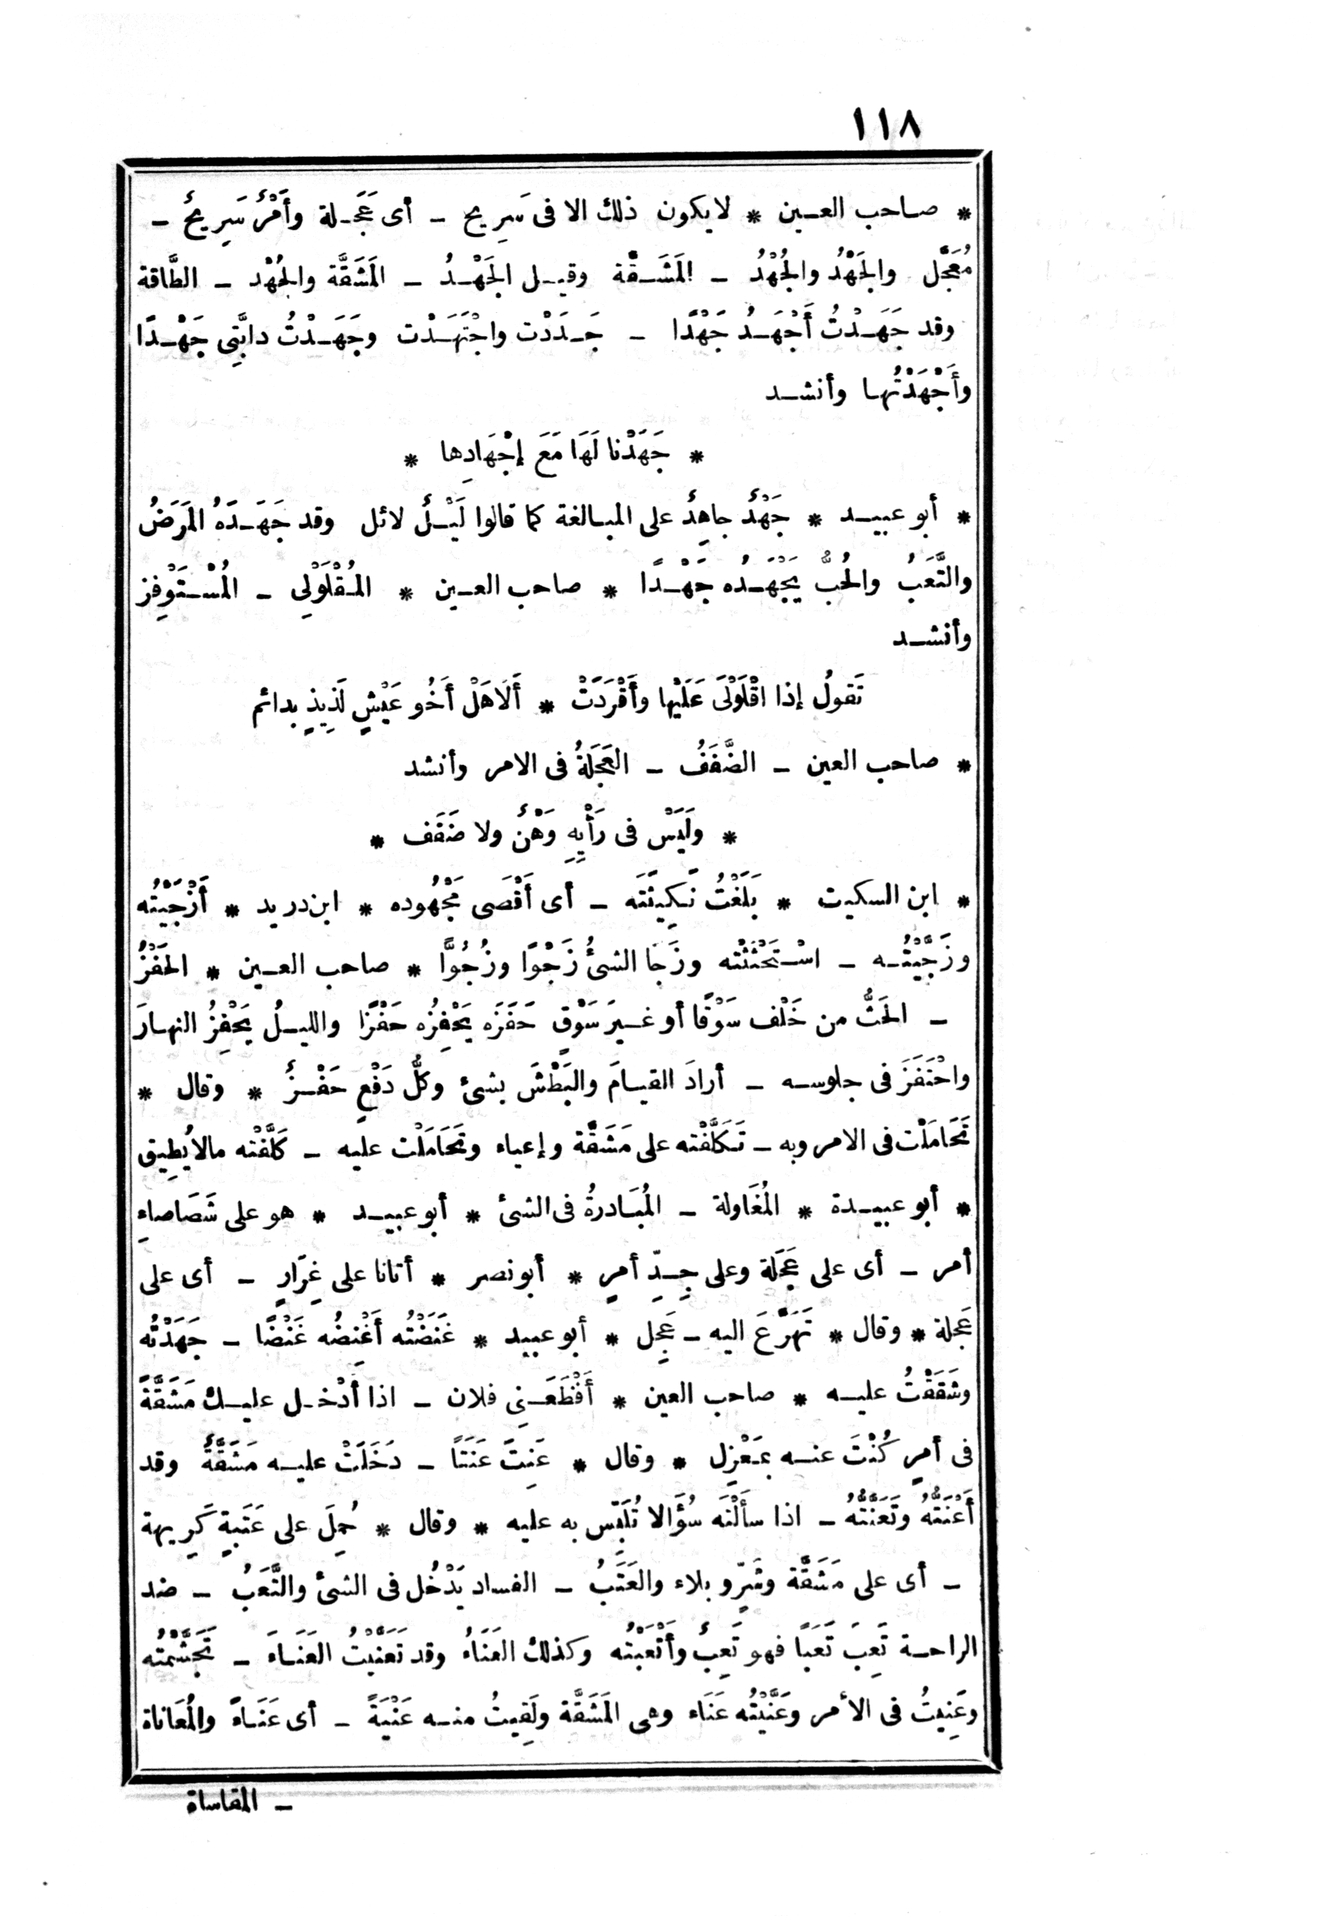 ١١٨
* صاحب العين * لا يكون ذلك الا فى سَرِيح - أى عَجَلة وأَمْرٌ سَرِيحٌ -
مُعَجَّل والجَهْدُ والجُهْدُ - المَشَقَّة وقيل الجَهْدُ - المَشَقَّة والجُهْد - الطَّاقة
وقد جَهَدْتُ أَجْهَدُ جَهْدًا - جَدَدْت واجْتَهَدْت وجَهَدْتُ دابَّتِى جَهْدًا
وأَجْهَدْتُها وأنشد
* جَهَدْنا لَهَا مَعَ إجْهَادِها *
* أبو عبيد * جَهْدٌ جاهِدٌ على المبالغة كما قالوا لَيْلٌ لائل وقد جَهَدَهُ المَرَضُ
والتَّعَبُ والحُبُّ يَجْهَدُه جَهْدًا * صاحب العين * المُقْلَوْلِى - المُسْتَوْفِز
وأنشد
تَقولُ إذا اقْلَوْلَى عَلَيْها وأَقْرَدَتْ * أَلَا هَلْ أَخُو عَيْشٍ لَذِيذٍ بدائم
* صاحب العين - الضَّفَفُ - العَجَلةُ فى الامر وأنشد
* ولَيْسَ فى رَأْيِهِ وَهْنٌ ولا ضَفَف *
* ابن السكيت * بَلَغْتُ نَكِيثَتَه - أى أَقْصَى مَجْهُوده * ابن دريد * أَزْجَيْتُه
وزَجَّيْتُه - اسْتَحْثَثْته وزَجَا الشئُ زَجْوًا وزُجُوًّا * صاحب العين * الحَفْزُ
- الحَثُّ من خَلْف سَوْقًا أو غيرَ سَوْقٍ حَفَزَه يَحْفِزُه حَفْزًا والليلُ يَحْفِزُ النهارَ
واحْتَفَزَ فى جلوسه - أرادَ القيامَ والبَطْشَ بشئ وكلُّ دَفْعٍ حَفْزٌ * وقال *
تَحَامَلْت فى الامر وبه - تَكَلَّفْته على مَشَقَّة وإعياء وتَحَامَلْت عليه - كَلَّفْته مالا يُطِيق
* أبو عبيدة * المُغَاولة - المُبَادرةُ فى الشئ * أبو عبيد * هو على شَصَاصاءِ
أمر - أى على عَجَلة وعلى جِدِّ أمرٍ * أبو نصر * أتانا على غِرَارٍ - أى على
عَجلة * وقال * تَهَرَّعَ اليه - عَجِل * أبو عبيد * غَنَضْتُه أَغْنِضُه غَنْضًا - جَهَدْتُه
وشَقَقْتُ عليه * صاحب العين * أَفْظَعَنِى فلان - اذا أدْخل عليك مَشَقَّةً
فى أمرٍ كُنْتَ عنه بمَعْزِل * وقال * عَنِتَ عَنَتًا - دَخَلَتْ عليه مَشَقَّةٌ وقد
أَعْنَتُّهُ وتَعَنَّتُّهُ - اذا سأَلْتَه سُؤَالا تُلَبِّس به عليه * وقال * حُمِلَ على عَتَبةٍ كَرِيهة
- أى على مَشَقَّة وشَرٍّ وبلاء والعَتَبُ - الفساد يَدْخُل فى الشئ والتَّعَبُ - ضد
الراحة تَعِبَ تَعَبًا فهو تَعِبٌ وأَتْعَبْتُه وكذلك العَنَاءُ وقد تَعَنَّيْتُ العَنَاءَ - تَجَشَّمْتُه
وعَنِيتُ فى الأمر وعَنَّيْتُه عَنَاء وهى المَشَقَّة ولَقِيتُ منه عَنْيَةً - أى عَنَاءً والمُعَاناة
- المقاساة